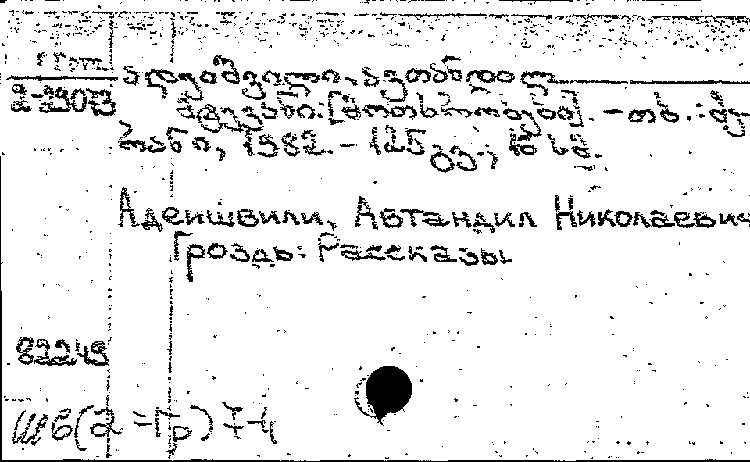 ადეიშვილი, ავთანდილ
მტევანი: [მოთხრობები]. – თბ.: მე
რანი, 1982. – 125 გვ.; სმ.
Адеишвили, Автандил Николаевич
Гроздь: Рассказы
82249
Шб(2=Гр)7-4